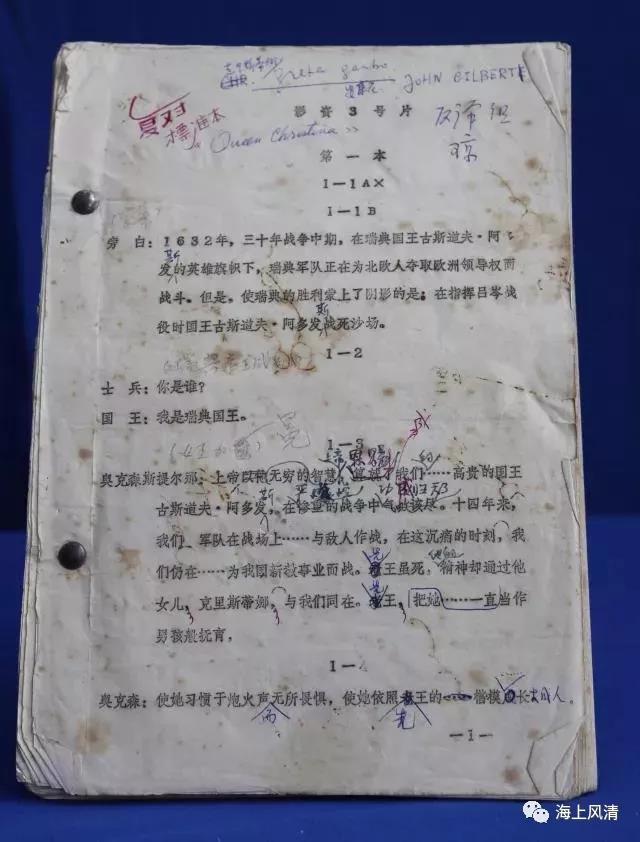 Greta Garbo
JOHN GILBERT
影资3号片
复对
标准本
《Queen Christina》
第一本
Ⅰ—1AX
Ⅰ—1B
旁 白：1632年，三十年战争中期，在瑞典国王古斯道夫·阿
斯
发的英雄旗帜下，瑞典军队正在为北欧人夺取欧洲领导权而
战斗。但是，使瑞典的胜利蒙上了阴影的是：在指挥吕岑战
斯
役时国王古斯道夫·阿多发战死沙场。
Ⅰ—2
士 兵：你是谁？
国 王：我是瑞典国王。
Ⅰ—3
奥克森斯提尔那：上帝以他无穷的智慧，我们……高贵的国王
斯
古斯道夫·阿多发，在惨重的战争中
十四年来，
我们、军队在战场上……与敌人作战，在这沉痛的时刻，我
们仍在……为我国新教事业而战。
先
王虽死，精神却通过他
女儿，克里斯蒂娜，与我们同在。
先
王，把她……一直当作
男孩般抚育，
Ⅰ—4
奥克森：使她习惯于炮火声无所畏惧，使她依照老王的……楷模长大成人。
而
先
—1—
海上风清